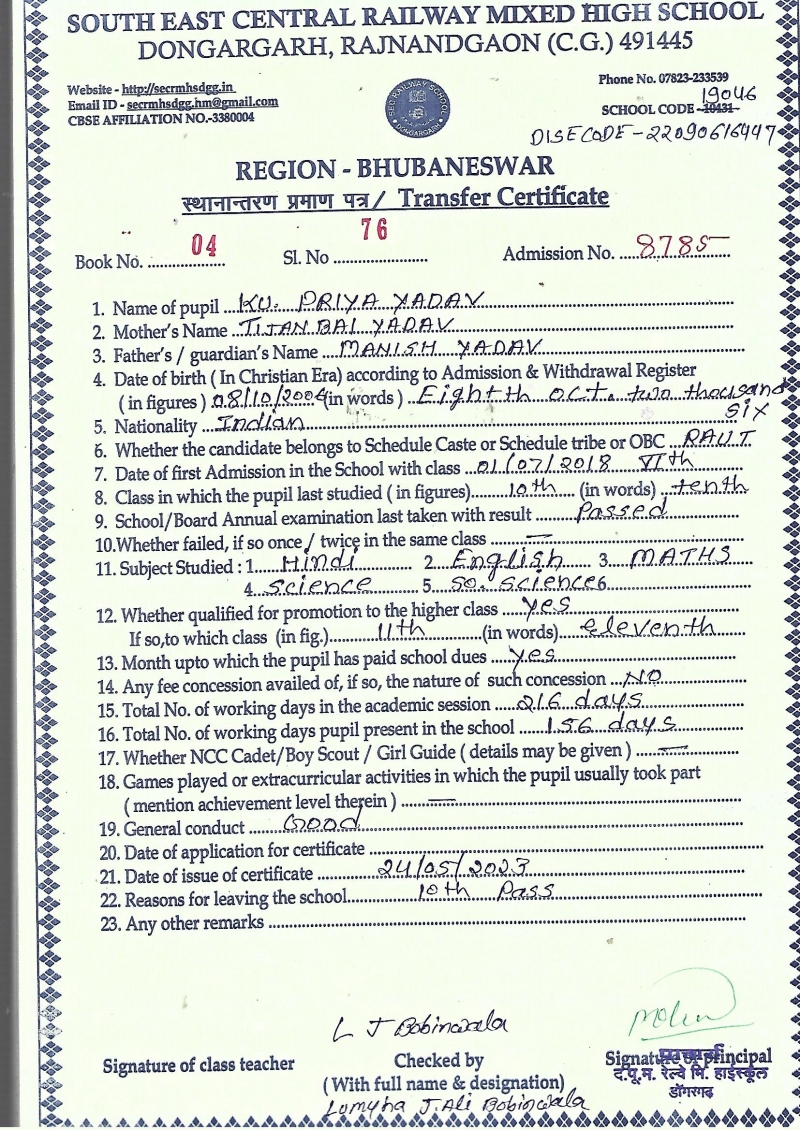 SOUTH EAST CENTRAL RAILWAY MIXED HIGH SCHOOL
DONGARGARH, RAJNANDGAON (C.G.) 491445
Website - http://secrmhsdgg.in
Email ID - secrmhsdgg.hm@gmail.com
CBSE AFFILIATION NO.-3380004
SEC RAILWAY SCHOOL
DONGARGARH
Phone No. 07823-233539
19046
SCHOOL CODE -10431-
DISECODE-22090616447
REGION - BHUBANESWAR
स्थानान्तरण प्रमाण पत्र / Transfer Certificate
Book No. 04 Sl. No 76 Admission No. 8785
1. Name of pupil KU. PRIYA YADAV
2. Mother's Name TIJAN BAI YADAV
3. Father's / guardian's Name MANISH YADAV
4. Date of birth ( In Christian Era) according to Admission & Withdrawal Register
( in figures ) 08/10/2006 (in words ) Eighth oct. two thousand
six
5. Nationality Indian
6. Whether the candidate belongs to Schedule Caste or Schedule tribe or OBC RAUT
7. Date of first Admission in the School with class 01/07/2018 VIth
8. Class in which the pupil last studied ( in figures) 10th (in words) tenth
9. School/Board Annual examination last taken with result Passed
10.Whether failed, if so once / twice in the same class —
11. Subject Studied : 1 Hindi 2 English 3 MATHS
4 science 5 so. science 6
12. Whether qualified for promotion to the higher class yes
If so,to which class (in fig.) 11th (in words) eleventh
13. Month upto which the pupil has paid school dues yes
14. Any fee concession availed of, if so, the nature of such concession NO
15. Total No. of working days in the academic session 216 days
16. Total No. of working days pupil present in the school 156 days
17. Whether NCC Cadet/Boy Scout / Girl Guide ( details may be given ) —
18. Games played or extracurricular activities in which the pupil usually took part
( mention achievement level therein ) —
19. General conduct Good
20. Date of application for certificate
21. Date of issue of certificate 24/05/2023
22. Reasons for leaving the school 10th Pass
23. Any other remarks
L J Bobinwala
Signature of class teacher Checked by Signature of principal
प्राचार्य
(With full name & designation) द.पू.म. रेल्वे मि. हाईस्कूल
Lumyha J. Ali Bobinwala डोंगरगढ़